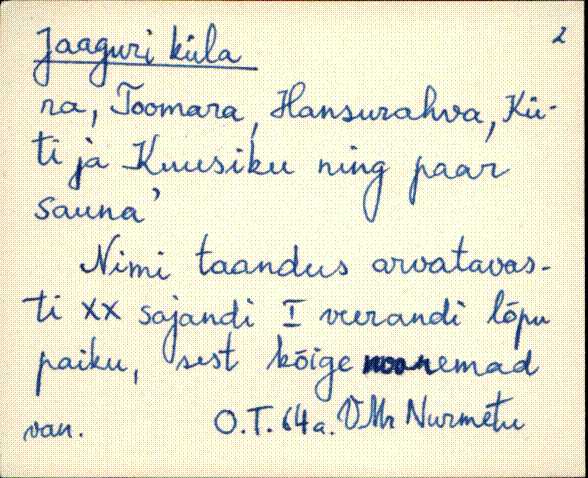 Jaaguri küla 2
ra, Toomara, Hansurahva, Kü-
ti ja Kuusiku ning paar
sauna'
Nimi taandus arvatavas-
ti XX sajandi I veerandi lõpu
paiku, sest kõige noonemad
van. O.T. 64 a. VMr Nurmetu